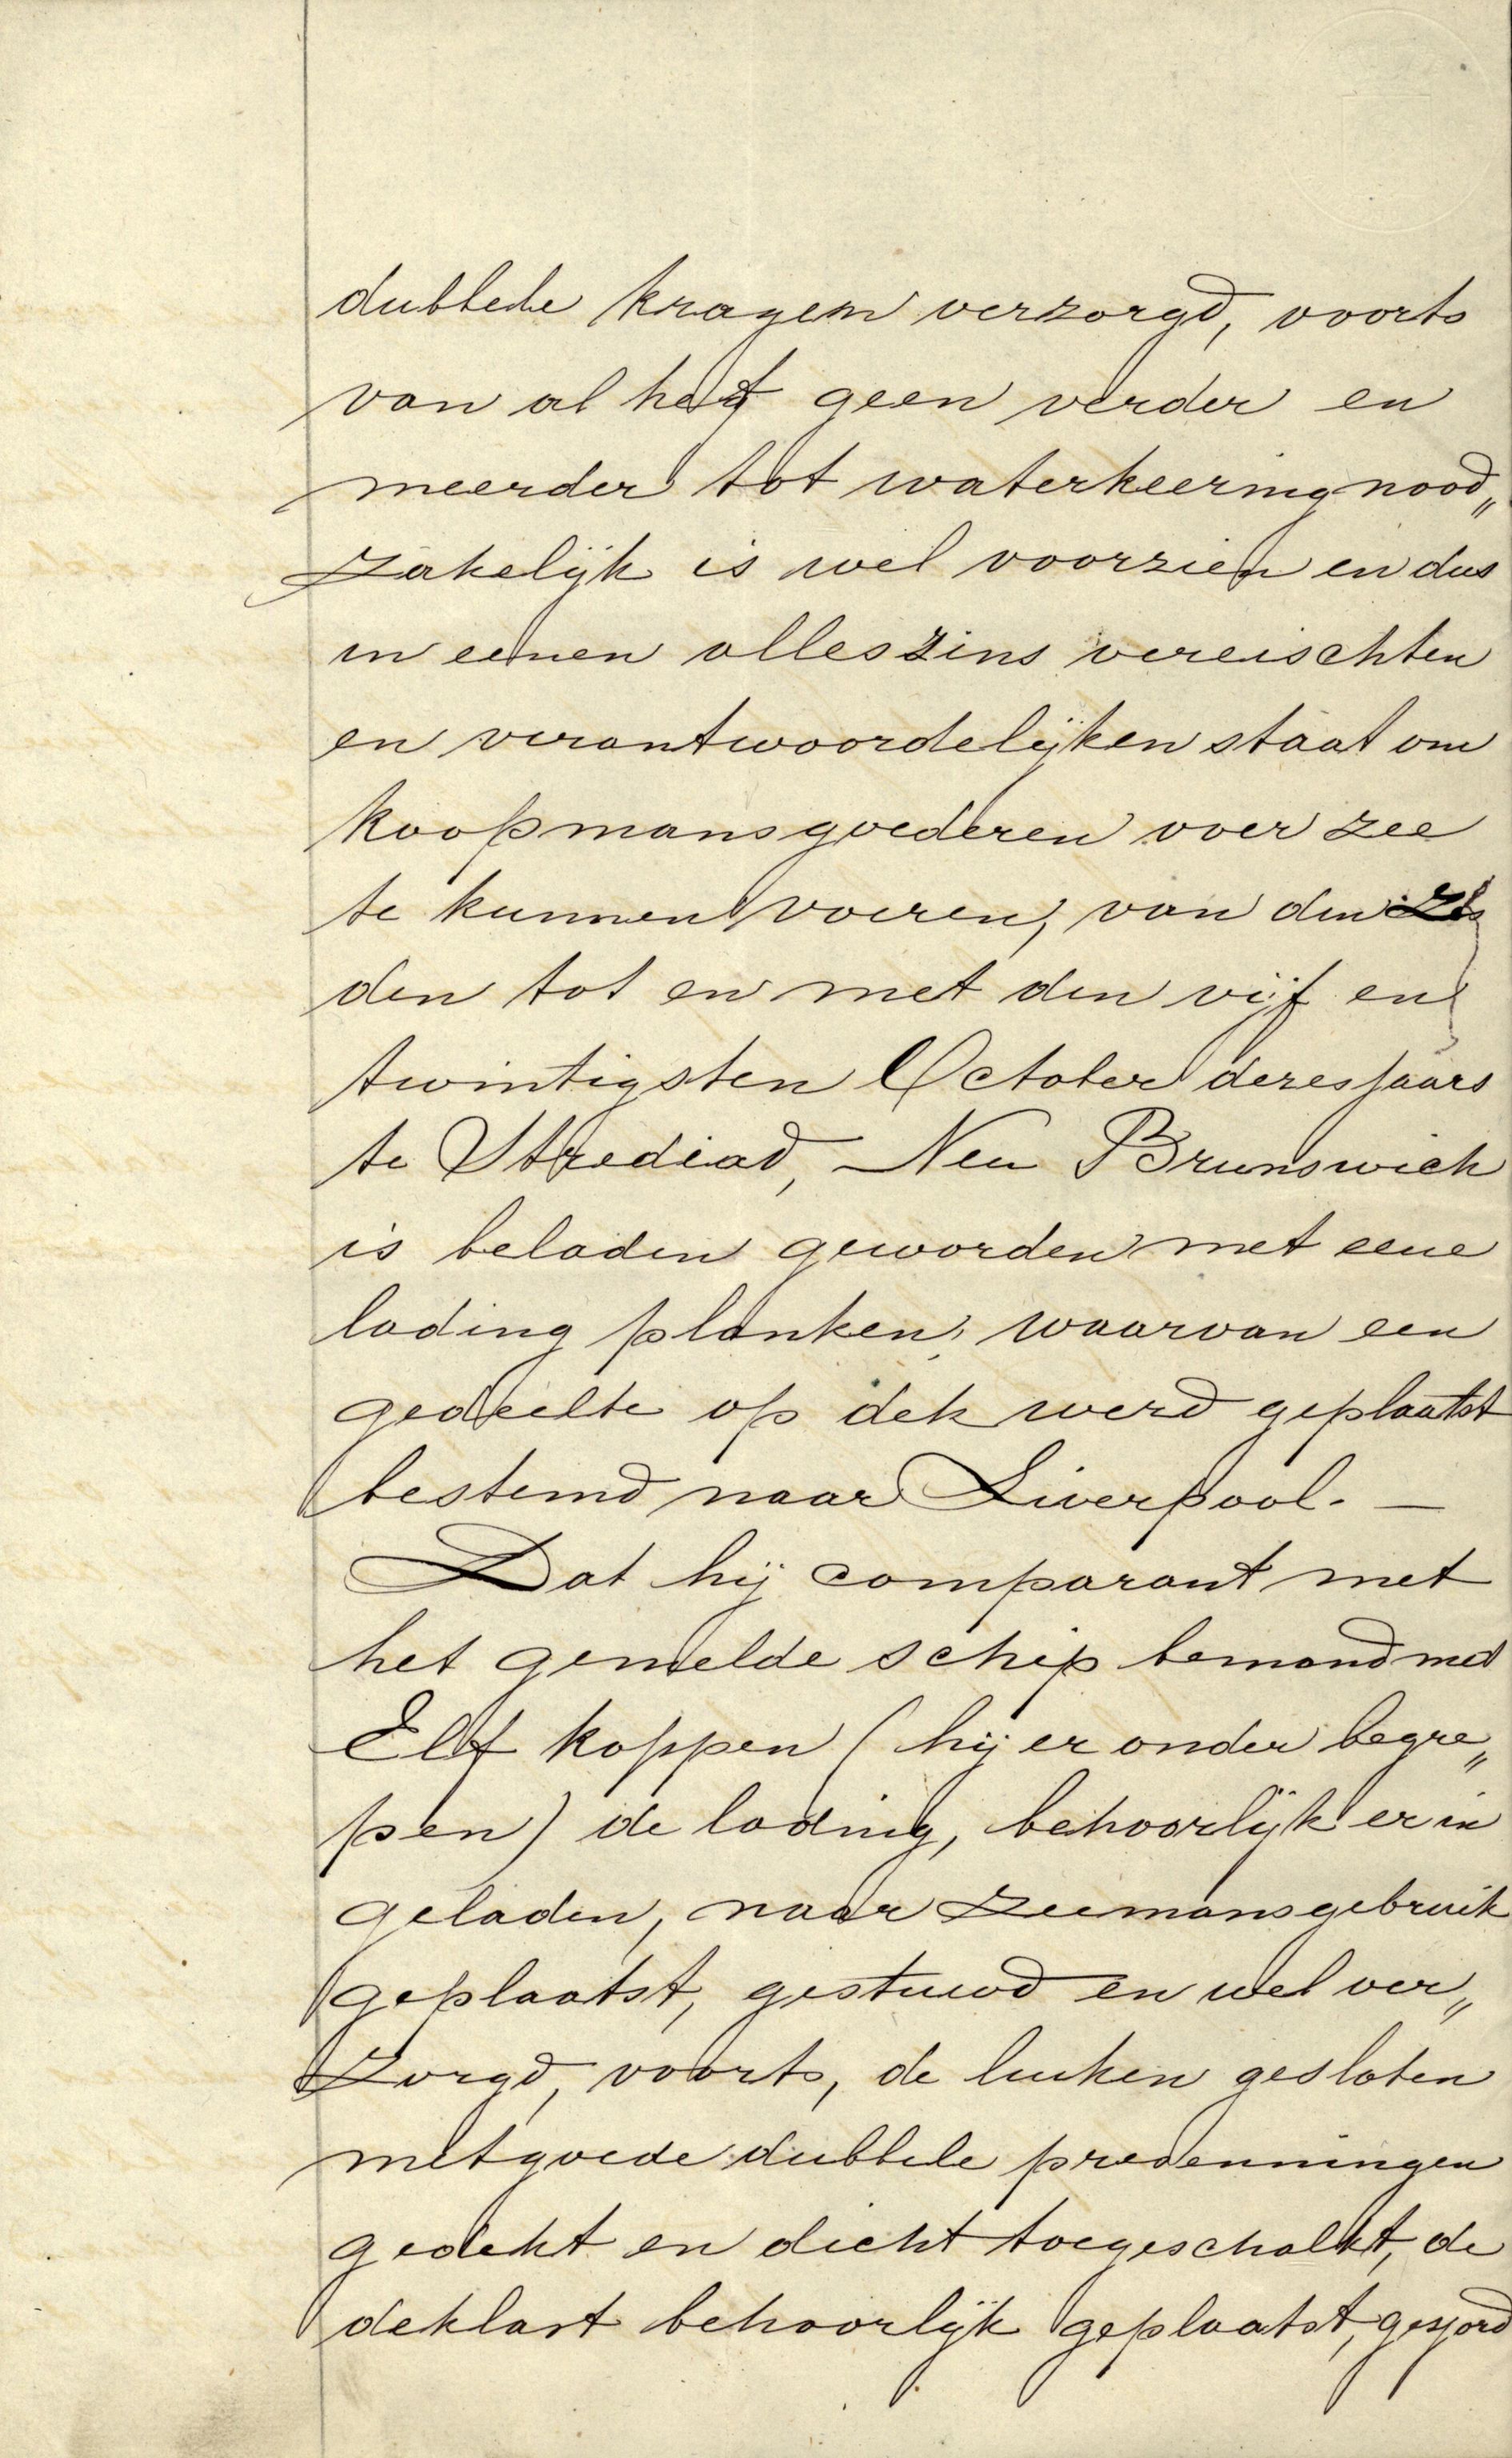 dubbele kragen verzorgd, voorts
van al het geen verder en
meerder tot waterkeering nood„
zakelijk is wel voorzien en dus
in eenen alleszins vereischten
en verantwoordelijken staat om
koopmansgoederen over zee
te kunnen voeren, van den zes
den tot en met den vijf en
twintigsten October dezes jaars
te Strediad, New Brunswick
is beladen geworden met eene
lading planken, waarvan een
gedeelte op dek werd geplaatst
bestemd naar Liverpool. —
Dat hij comparant met
het gemelde schip bemand met
Elf koppen (hij er onder begre„
pen) de lading, behoorlijk er in
geladen, naar zeemansgebruik
geplaatst, gestuwd en wel ver„
zorgd, voorts, de luiken gesloten
met goede dubbele presenningen
gedekt en dicht toegeschalkt, de
deklast behoorlijk geplaatst, gesjord